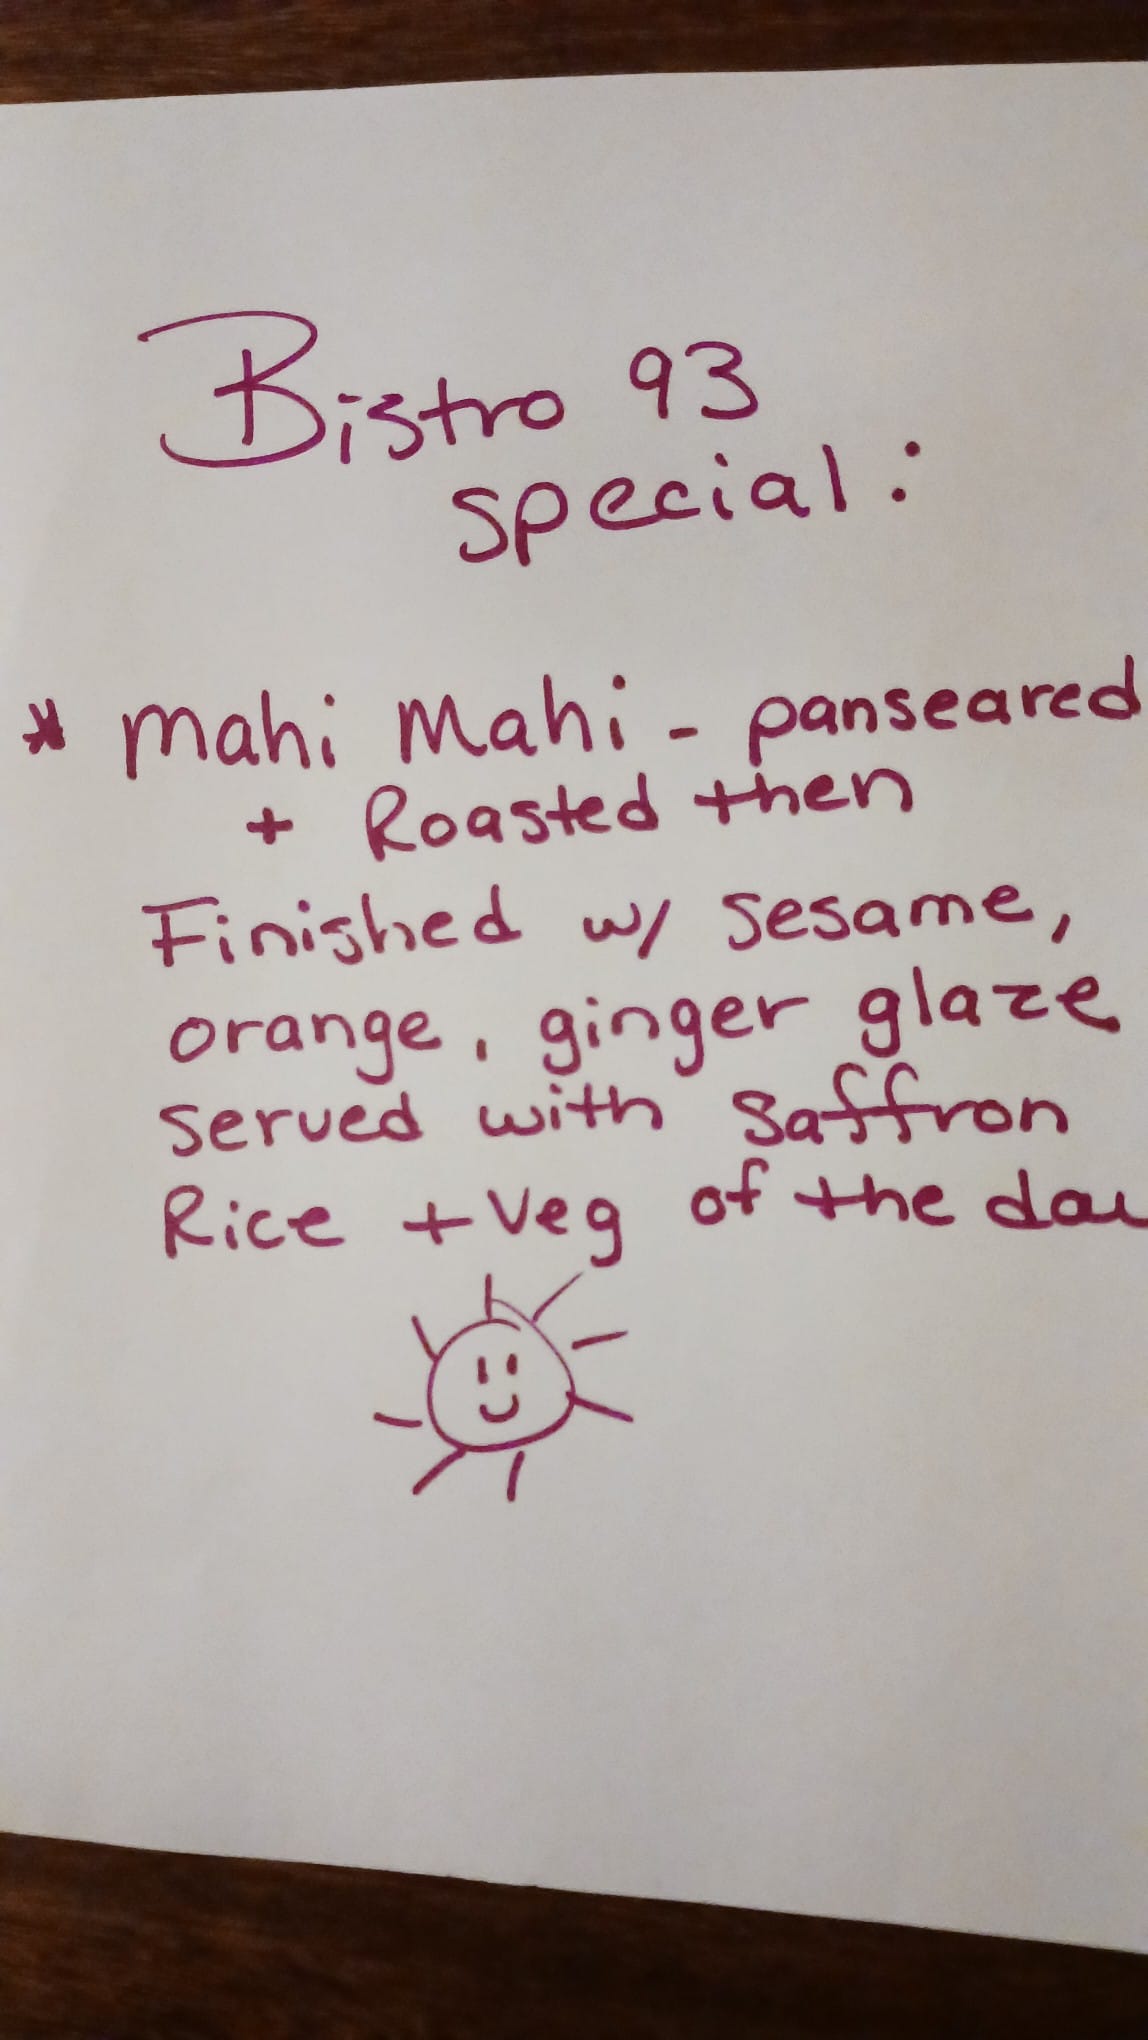 Bistro 93
special:
* Mahi Mahi - panseared
+ Roasted then
Finished w/ sesame,
orange, ginger glaze
served with Saffron
Rice + Veg of the day